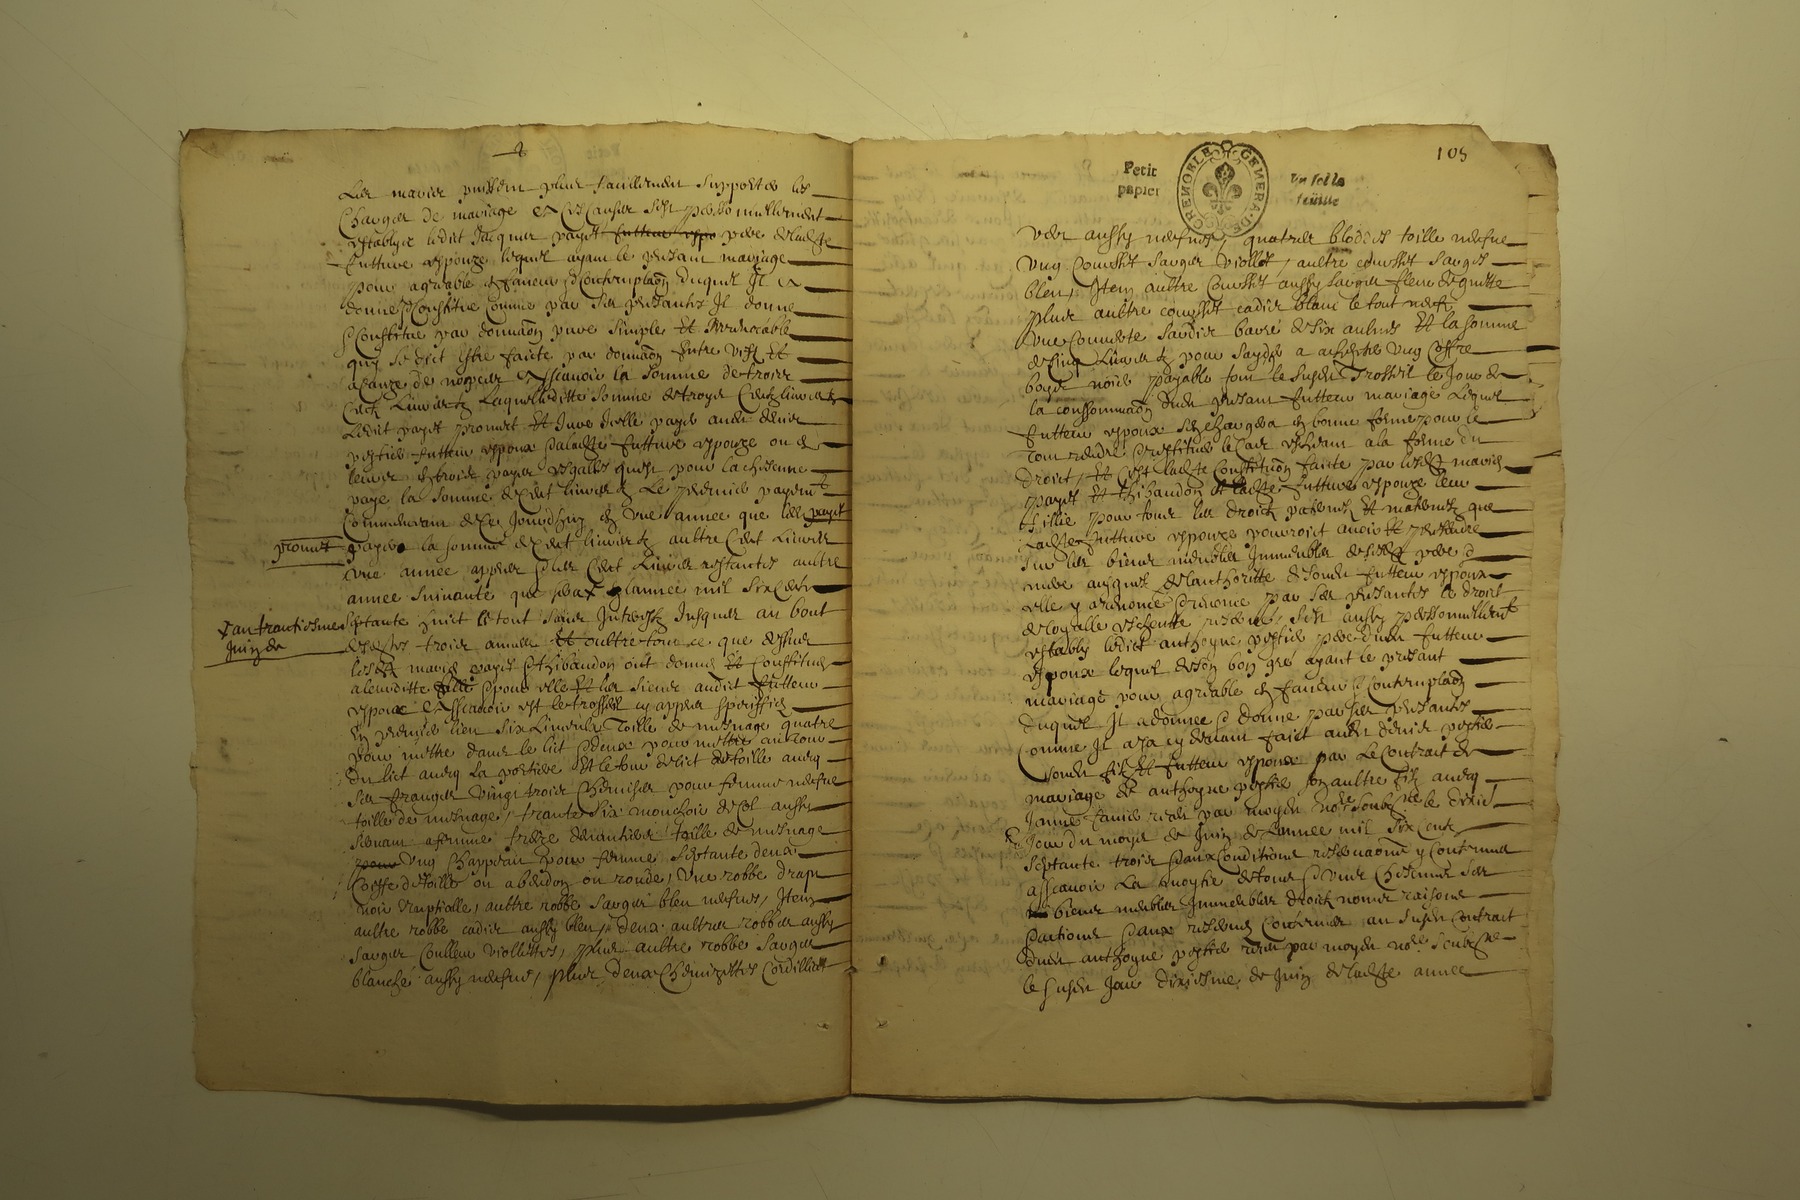 Les maries puissent plus facillement supporter les
Charges de mariage Et Ces Causes s'est personnellement
estably ledict Jacques payet futteur espo pere de ladte
futture espouze lequel ayant le present mariage
pour agreable en faveur & Contemplaon duquel Il a
donne & Constitue Comme par Ses presantes Il donne
& Constitue par donnaon pure simple Et Irrevocable
que se dict estre faicte par donnaon Entre vifz Et
a cauze de nopces Assçavoir la somme de troies
Centz Livres tz Laquelleditte somme de troys Centz livres tz
Ledict payet promect Et Jure Icelle payer audit denis
futteur espoux & a ladte futture espouze ou es
leurs en trois payes esgalles quest pour la chascune
paye la somme de Cent livres tz Le premier payemt
Commencera de Ce Jourdhuy en une annee que led payet
promet
payera la somme de Cent livres tz aultre Cent Livres
une annee appres & les Cent Livres restantes aultre
annee suivante que sera lannee mil six Centz
au trantiesme
Juin de
septante huit le tout sans Interestz Jusques au bout
desdites trois annees Et oultre tout ce que dessus
lesdts maries payet & thibaudon ont donne Et Constitue
a leurditte fille & pour elle Et les siens audict futteur
espoux Assçavoir est le trossel cy appres speciffie
En premier lieu six Linceulx toille de mesnage quatre
pour mettre dans le lict & deux pour mettre au tour
du lict avecq la portiere Et le tour de lict de toille avecq
ses franges vingt trois Chemises pour femme neufve
toille de mesnage, trante six mouchoir de Col aussy
servant a femme treze devantiers toille de mesnage
pour ung Chappeau pour femme septante deux
Coiffe de toille ou a bendon ou ronde, une robbe drap
noir nuptialle, aultre robbe sarges bleu neufves, Item
aultre robbe cadis aussy bleu, deux aultres robbes aussy
sarges Coulleur viollettes, plus aultre robbe sarges
blanche aussy neufve, plus deux Chemizettes Cordillat
105
Petit
papier
GRENOBLE GENERA. DE
Un sol la
feuille
vers aussy neufves, quatres blodes toille neufve
Ung Courset sarges viollet, aultre courset sarges
bleu, Item aultre Courset aussy sarges fleur de
plus aultre courset cadis blanc le tout neufz
une Couverte sardis barre de six aulnes Et la somme
de Cinq Livres tz pour saydes a achepter Ung Coffre
boys noier payable tout le susdit Trossel le Jour de
la conssommaon dudt presant futteur mariage Lequel
futteur espoux sen chargera en bonne forme pour ce
tout rendre & restitue le Cas escheant a la forme du
droict, Et C'est ladte Constituon faicte par lesdts maries
payet Et thibaudon a ladte futture espouze leur
fillie pour tous les droictz paternel Et maternel que
Ladte futture espouze pourroit avoir Et prethandre
sur les biens meubles Immeubles desdts pere &
mere ausquel de lauthoritte de son dt futteur espoux
elle y a renonce & renonce par ses presantes le droit
de loyalle escheutte reserve, s'est aussy personnellemt
estably ledict anthoyne pere dudt futteur
espoux lequel de son bon gré ayant le presant
mariage pour agreable en faveur & Contemplaon
duquel Il a donne & donne par ses presantes
Comme Il a Ja cy devant faict audit denis
son dt filz Et futteur espoux par Le Contract de
mariage de anthoyne son aultre filz avecq
Jeanne receu par moydt nore soubzne le dixie
Jour du moys de Juin de Lannee mil six cents
septante trois & aux Conditions reservaons y Contenues
assçavoir La moytie de tous & uns Chascuns ses
biens meubles Immeubles droictz noms raisons
& actions & aux reserves Contenues au susdt Contract
dudt anthoyne receu par moydt nore soubzne
le susdt Jour dixiesme de Juin de ladte annee